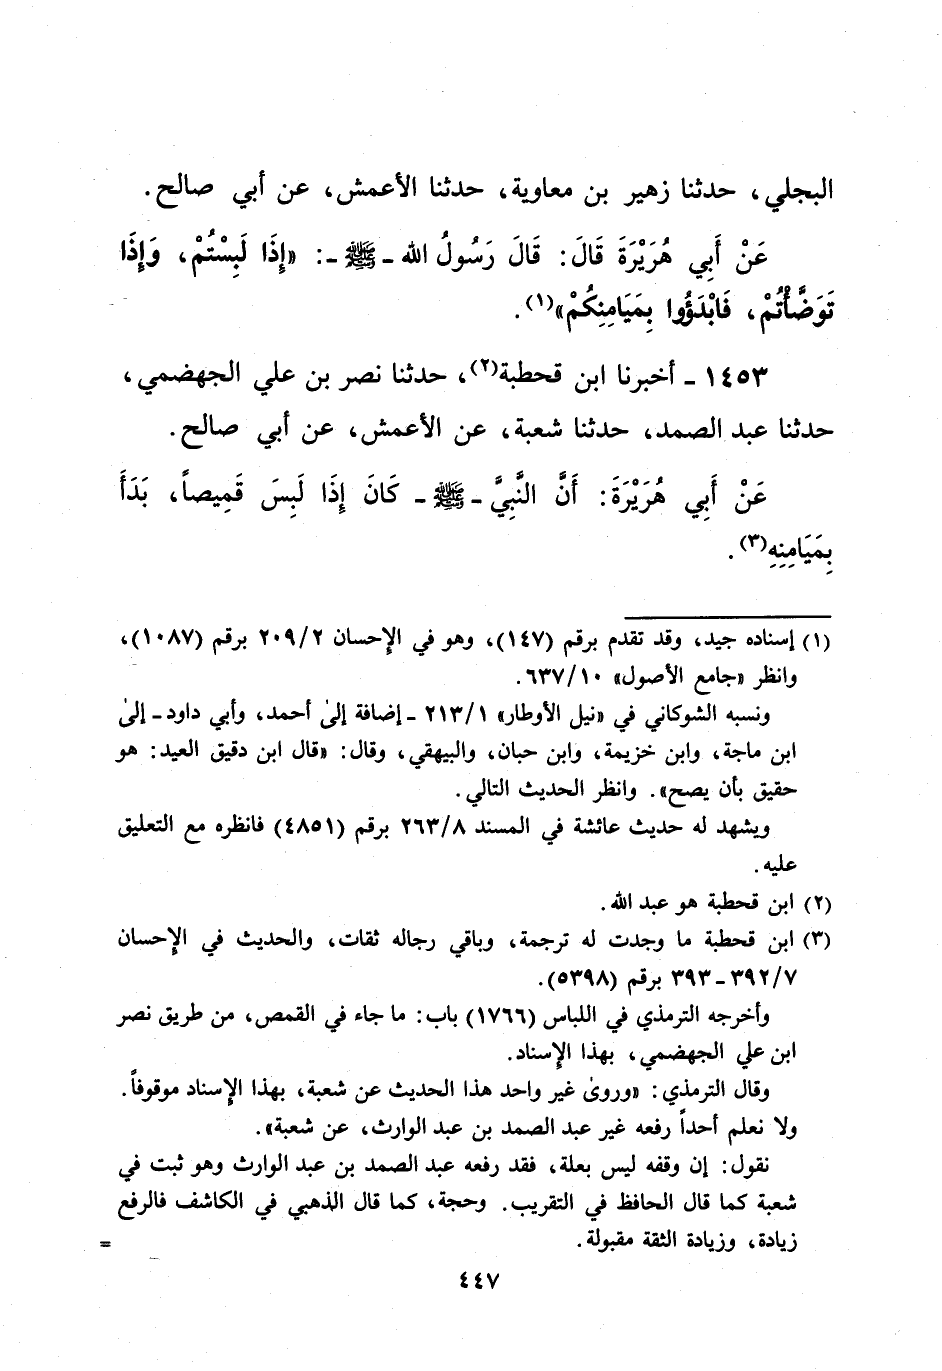 البجلي، حدثنا زهير بن معاوية، حدثنا الأعمش، عن أبي صالح.
عَنْ أَبِي هُرَيْرَةَ قَالَ: قَالَ رَسُولُ الله ـ ﷺ ـ: «إِذَا لَبِسْتُمْ، وَإِذَا
تَوَضَّأْتُمْ، فَابْدَؤُوا بِمَيَامِنِكُمْ»(١).
١٤٥٣ ـ أخبرنا ابن قحطبة(٢)، حدثنا نصر بن علي الجهضمي،
حدثنا عبد الصمد، حدثنا شعبة، عن الأعمش، عن أبي صالح.
عَنْ أَبِي هُرَيْرَةَ: أَنَّ النَّبِيَّ ـ ﷺ ـ كَانَ إِذَا لَبِسَ قَمِيصاً، بَدَأَ
بِمَيَامِنِهِ(٣).
(١) إسناده جيد، وقد تقدم برقم (١٤٧)، وهو في الإحسان ٢٠٩/٢ برقم (١٠٨٧)،
وانظر «جامع الأصول» ٦٣٧/١٠.
ونسبه الشوكاني في «نيل الأوطار» ٢١٣/١ ـ إضافة إلىٰ أحمد، وأبي داود ـ إلىٰ
ابن ماجة، وابن خزيمة، وابن حبان، والبيهقي، وقال: «قال ابن دقيق العيد: هو
حقيق بأن يصح». وانظر الحديث التالي.
ويشهد له حديث عائشة في المسند ٢٦٣/٨ برقم (٤٨٥١) فانظره مع التعليق
عليه.
(٢) ابن قحطبة هو عبد الله.
(٣) ابن قحطبة ما وجدت له ترجمة، وباقي رجاله ثقات، والحديث في الإحسان
٣٩٢/٧ ـ ٣٩٣ برقم (٥٣٩٨).
وأخرجه الترمذي في اللباس (١٧٦٦) باب: ما جاء في القمص، من طريق نصر
ابن علي الجهضمي، بهذا الإسناد.
وقال الترمذي: «وروىٰ غير واحد هذا الحديث عن شعبة، بهذا الإسناد موقوفاً.
ولا نعلم أحداً رفعه غير عبد الصمد بن عبد الوارث، عن شعبة».
نقول: إن وقفه ليس بعلة، فقد رفعه عبد الصمد بن عبد الوارث وهو ثبت في
شعبة كما قال الحافظ في التقريب. وحجة، كما قال الذهبي في الكاشف فالرفع
زيادة، وزيادة الثقة مقبولة. =
٤٤٧